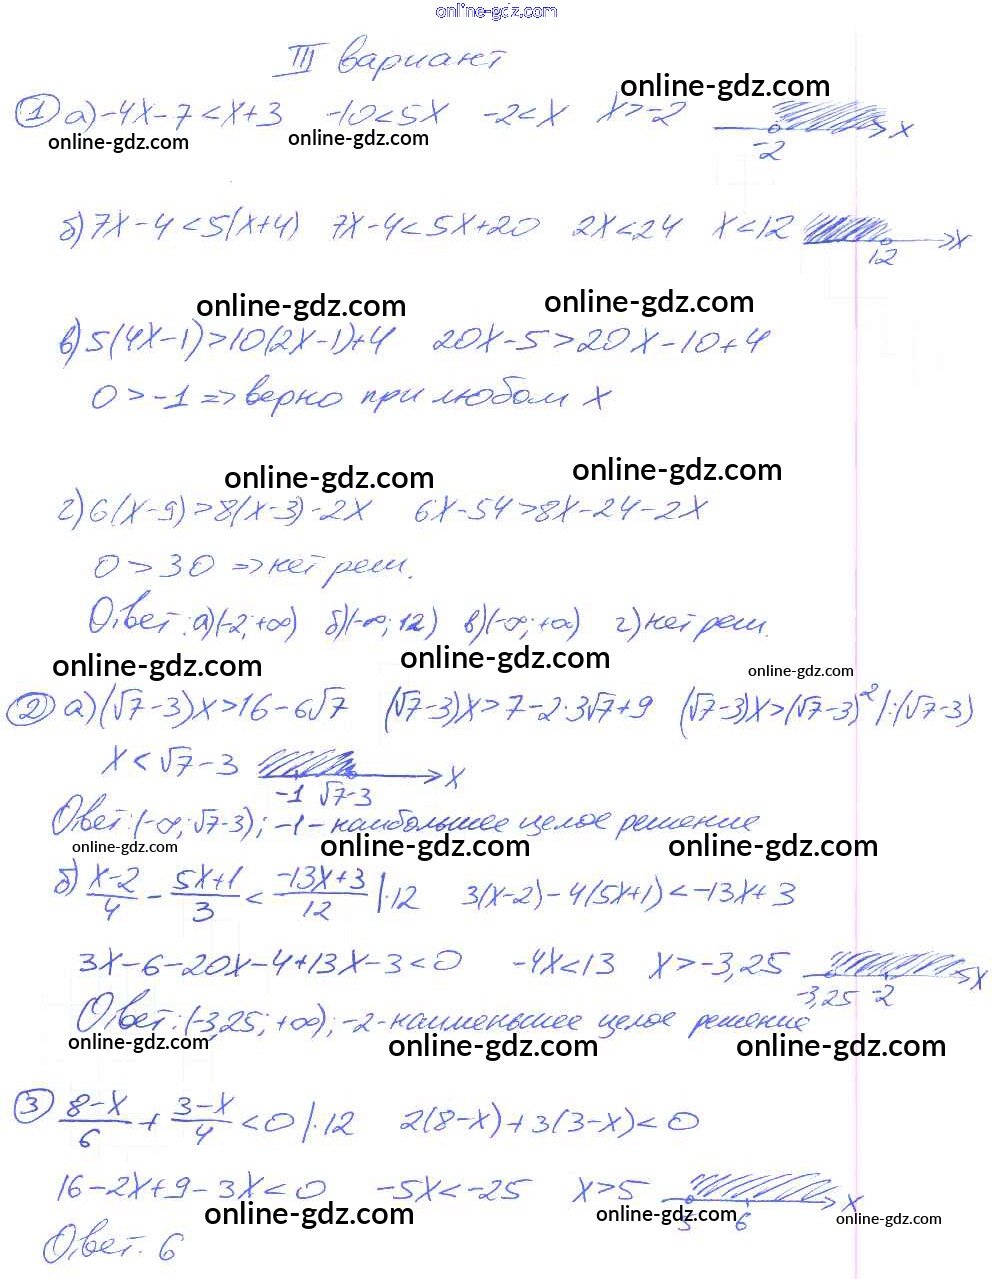 online-gdz.com
III вариант
online-gdz.com
① а) -4x-7<x+3 -10<5x -2<x x>-2 x
-2
online-gdz.com online-gdz.com
б) 7x-4<5(x+4) 7x-4<5x+20 2x<24 x<12 x
12
online-gdz.com online-gdz.com
в) 5(4x-1)>10(2x-1)+4 20x-5>20x-10+4
0>-1 => верно при любом x
online-gdz.com online-gdz.com
г) 6(x-9)>8(x-3)-2x 6x-54>8x-24-2x
0>30 => нет реш.
Ответ: а) (-2; +∞) б) (-∞; 12) в) (-∞; +∞) г) нет реш.
online-gdz.com online-gdz.com online-gdz.com
② а) (√7-3)x>16-6√7 (√7-3)x>7-2·3√7+9 (√7-3)x>(√7-3)² |:(√7-3)
x<√7-3 x
-1 √7-3
Ответ: (-∞; √7-3); -1 - наибольшее целое решение
online-gdz.com online-gdz.com online-gdz.com
б) (x-2)/4 - (5x+1)/3 < (-13x+3)/12 |·12 3(x-2)-4(5x+1)<-13x+3
3x-6-20x-4+13x-3<0 -4x<13 x>-3,25 x
-3,25 -2
Ответ: (-3,25; +∞); -2 - наименьшее целое решение
online-gdz.com online-gdz.com online-gdz.com
③ (8-x)/6 + (3-x)/4 <0 |·12 2(8-x)+3(3-x)<0
16-2x+9-3x<0 -5x<-25 x>5 x
5 6
online-gdz.com online-gdz.com online-gdz.com
Ответ: 6